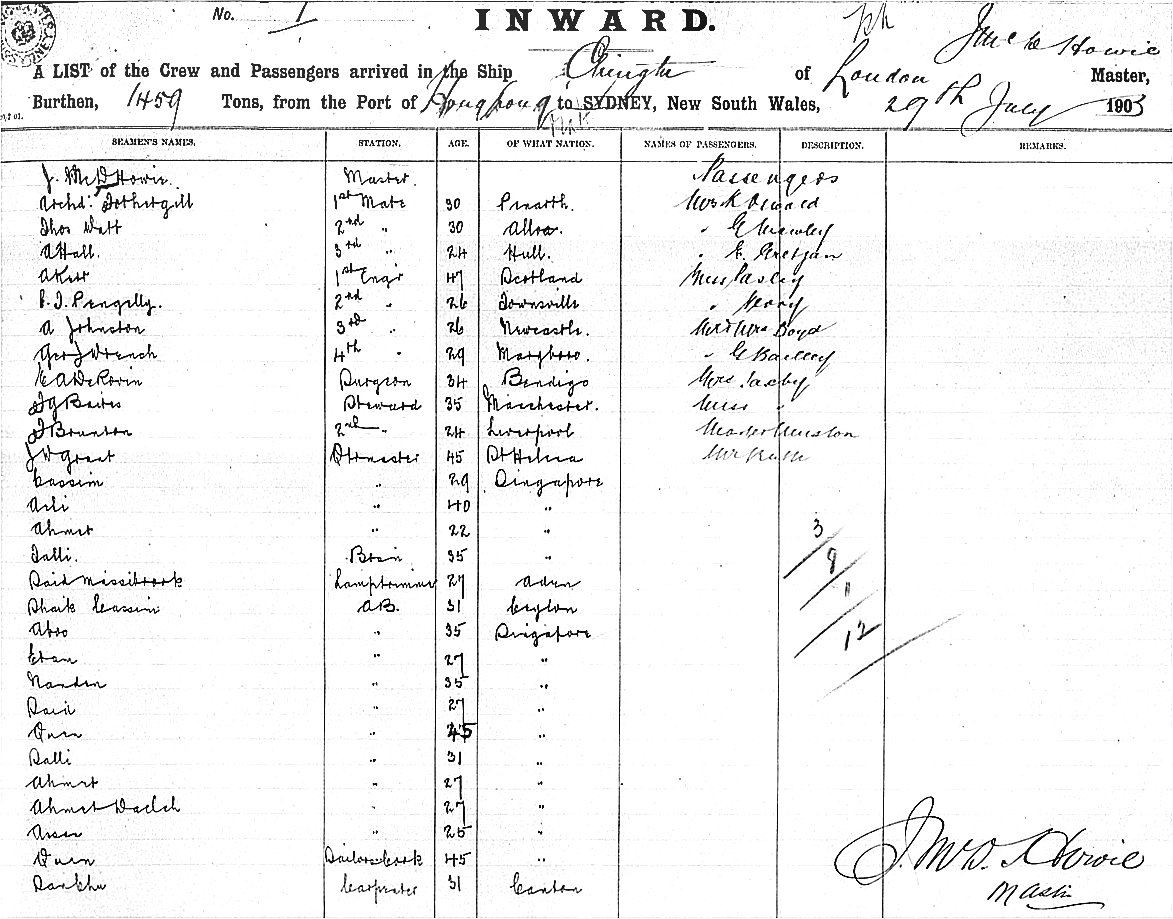 No. 1
INWARD.
J McD Howie
A LIST of the Crew and Passengers arrived in the Ship Chingtu of London Master,
Burthen, 1459 Tons, from the Port of Hongkong to SYDNEY, New South Wales, 29th July 1903
SEAMEN'S NAMES. STATION. AGE. OF WHAT NATION. NAMES OF PASSENGERS. DESCRIPTION. REMARKS.
J. McD Howie. Master. Passengers
Archd: Fothergill 1st Mate 30 Penarth. Mrs K Oswald
Thos Watt 2nd " 30 Alloa. "
A Hall. 3rd " 24 Hull. " E.
A Kerr 1st Engr 47 Scotland Miss Pasley
P. J. Pengelly. 2nd " 26 Townsville "
A Johnston 3rd " 26 Newcastle. Mr & Mrs Boyd
Geo J Wrench 4th " 29 Maryboro. "
E A De Rovin Surgeon 34 Bendigo Mrs Saxby
J G Bates Steward 35 Manchester. Miss "
J Brunton 2nd " 24 Liverpool Master
J W Grant Qtrmaster 45 St Helena
Cassim " 29 Singapore
Asli " 40 "
Ahmet " 22 " 3
Salli. Bosn 35 " 9
Said Lamptrimmer 27 Aden 11
Shaik Cassim AB. 31 Ceylon
Abro " 35 Singapore 12
Etam " 27 "
Nanden " 35 "
Said " 27 "
" 45 "
Salli " 31 "
Ahmet " 27 "
Ahmet " 27 "
" 25 "
Sailors Cook 45 " J. McD. Howie
Carpenter 31 Canton Master